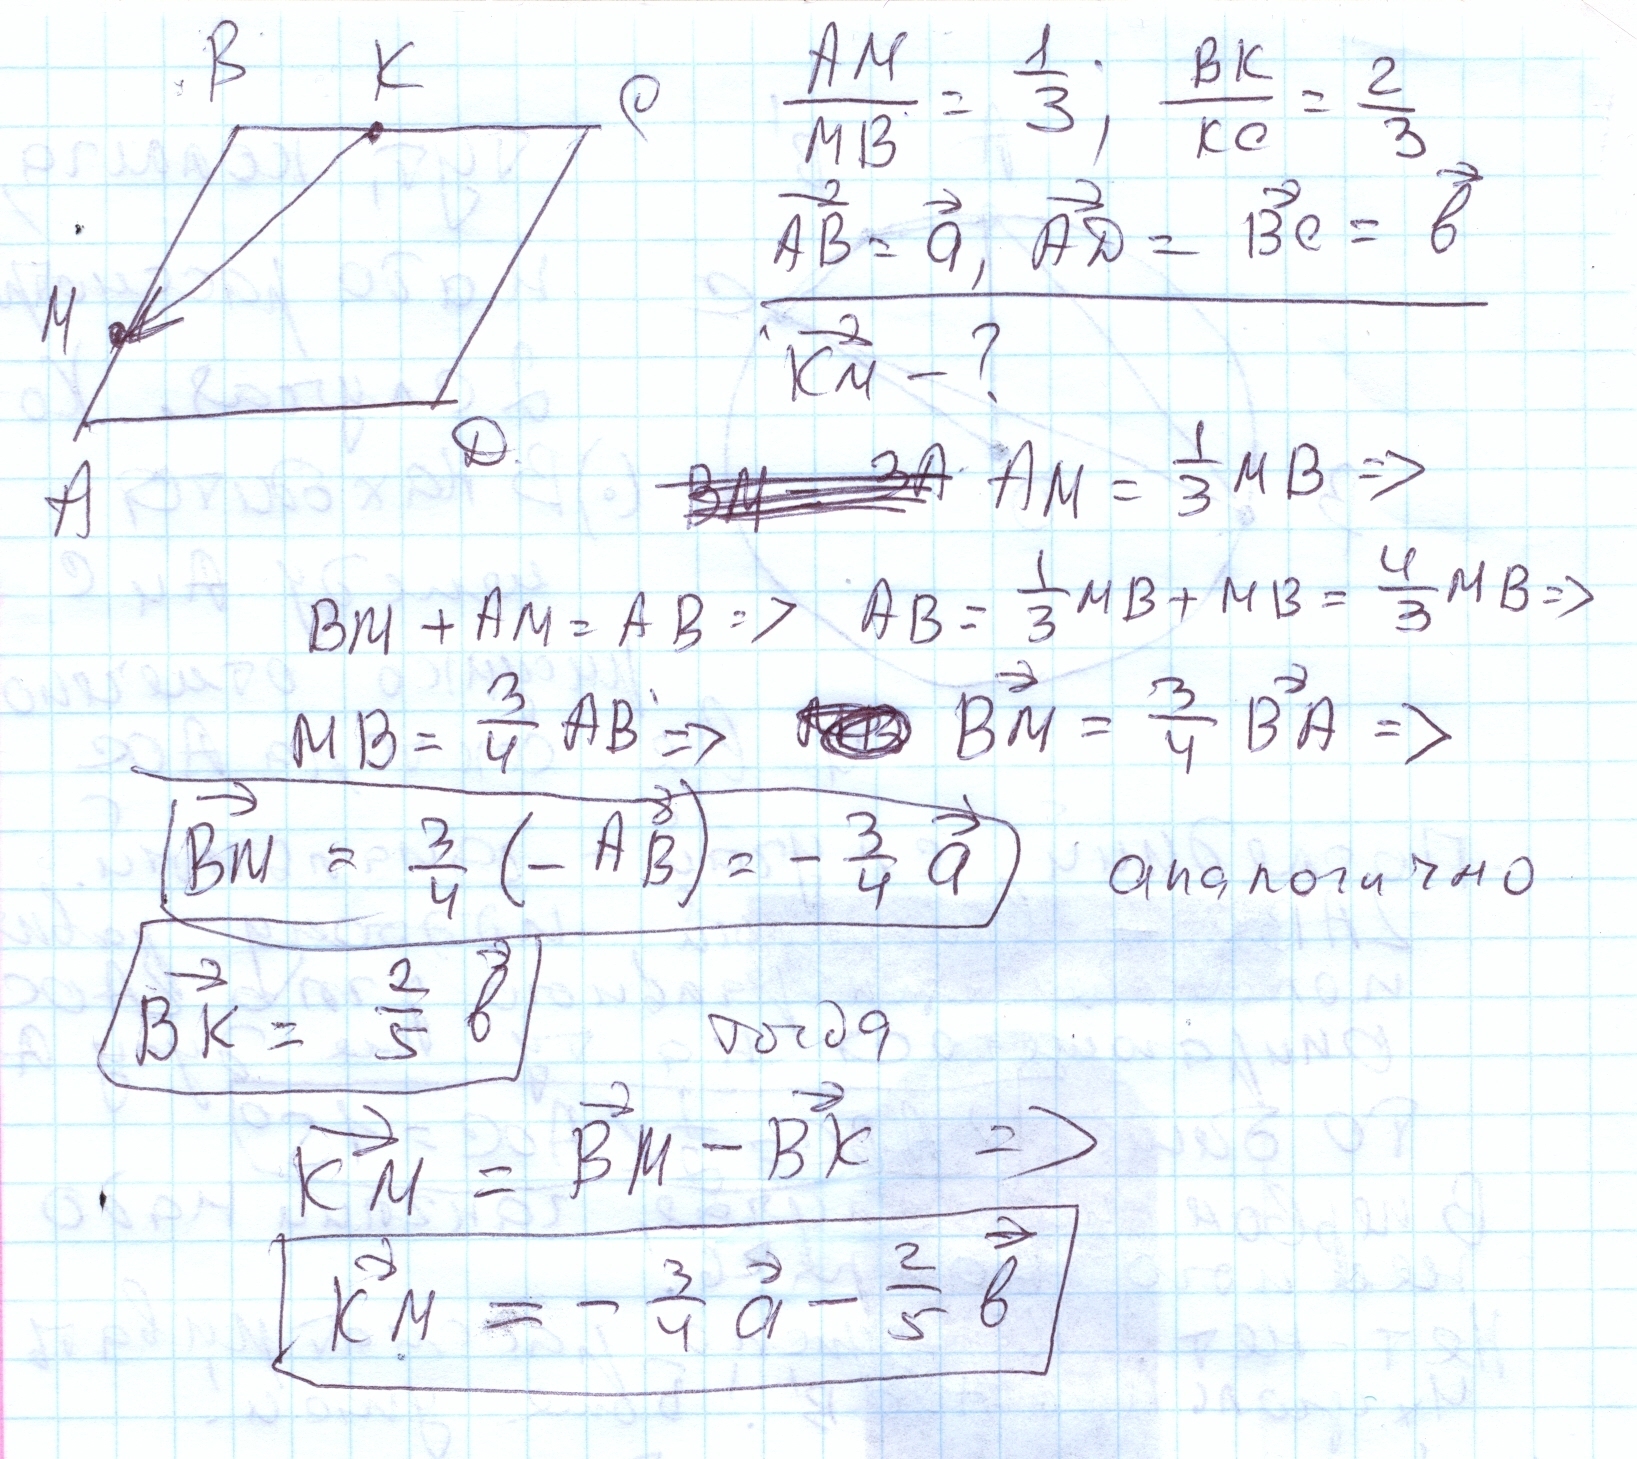 B K C
M
A D
AM/MB = 1/3, BK/KC = 2/3
\vec{AB} = \vec{a}, \vec{AD} = \vec{BC} = \vec{b}
\vec{KM} - ?
AM = 1/3 MB =>
BM + AM = AB => AB = 1/3 MB + MB = 4/3 MB =>
MB = 3/4 AB => \vec{BM} = 3/4 \vec{BA} =>
\vec{BM} = 3/4 (- \vec{AB}) = - 3/4 \vec{a} аналогично
\vec{BK} = 2/5 \vec{b} тогда
\vec{KM} = \vec{BM} - \vec{BK} =>
\vec{KM} = - 3/4 \vec{a} - 2/5 \vec{b}